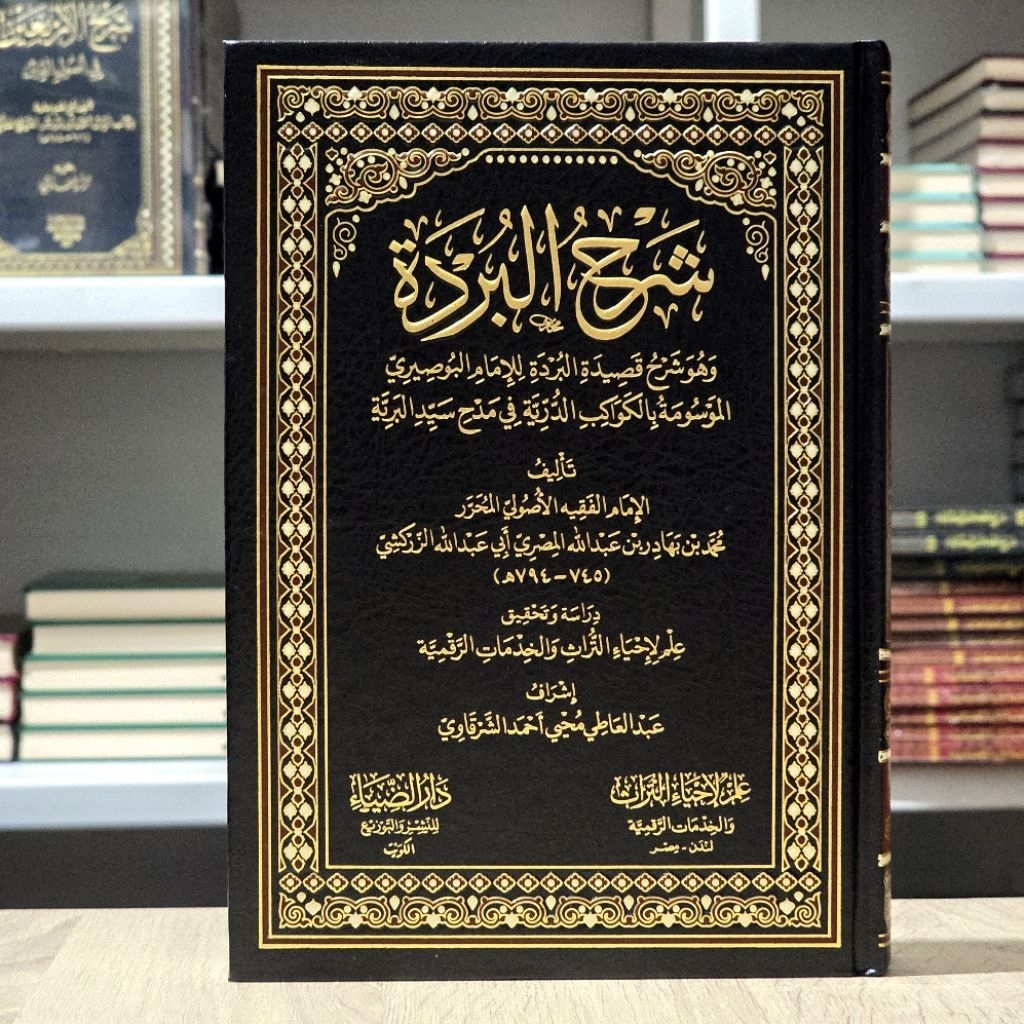 شَرْحُ البُرْدَة
وَهُوَ شَرْحُ قَصِيدَةِ البُرْدَةِ لِلإِمَامِ البُوصِيرِيّ
المَوْسُومَةُ بِالكَوَاكِبِ الدُّرِّيَّة فِي مَدْحِ سَيِّدِ البَرِيَّة
تَأْلِيفُ
الإِمَام الفَقِيه الأُصُولِيّ المُحَرِّر
مُحَمَّد بْن بَهَادِر بْن عَبْد الله المِصْرِيّ أَبِي عَبْد الله الزَّرْكَشِيّ
(٧٤٥ – ٧٩٤هـ)
دِرَاسَة وَتَحْقِيق
عِلْم لِإِحْيَاءِ التُّرَاثِ وَالخِدْمَاتِ الرَّقْمِيَّة
إِشْرَافُ
عَبْد العَاطِي مُحْيِي أَحْمَد الشَّرْقَاوِيّ
عِلْم لِإِحْيَاءِ التُّرَاث
وَالخِدْمَات الرَّقْمِيَّة
لندن - مصر
دَارُ الضِّيَاء
لِلنَّشْرِ وَالتَّوْزِيْع
الكويت
شرح الأربعين
في أصول الدين